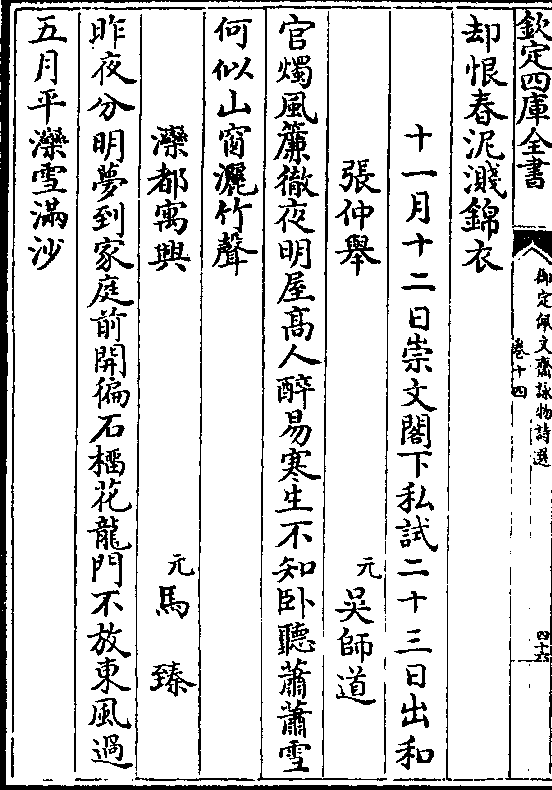 欽定四庫全書
御定佩文齋詠物詩選
卷十四
四十六
却恨春泥濺錦衣
十一月十二日崇文閣下私試二十三日出和
張仲舉 元 吳師道
官燭風簾徹夜明屋高人醉易寒生不知卧聽蕭蕭雪
何似山窗灑竹聲
灤都寓興 元 馬臻
昨夜分明夢到家庭前開徧石榴花龍門不放東風過
五月平灤雪滿沙